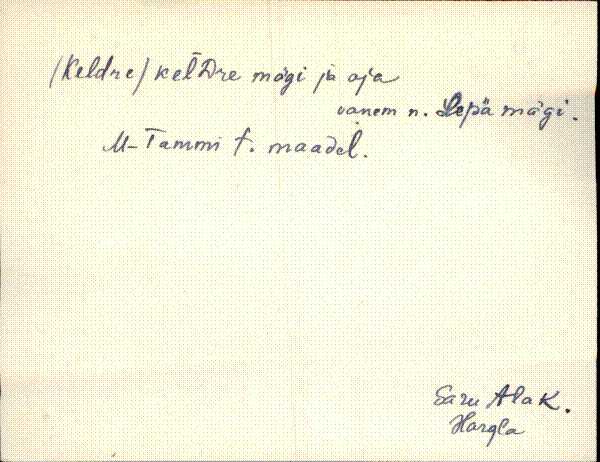 (Keldre) kel̄Dre mägi ja oja
vanem n. Lepä mägi.
M-Tammi t. maadel.
Saru Alak.
Hargla